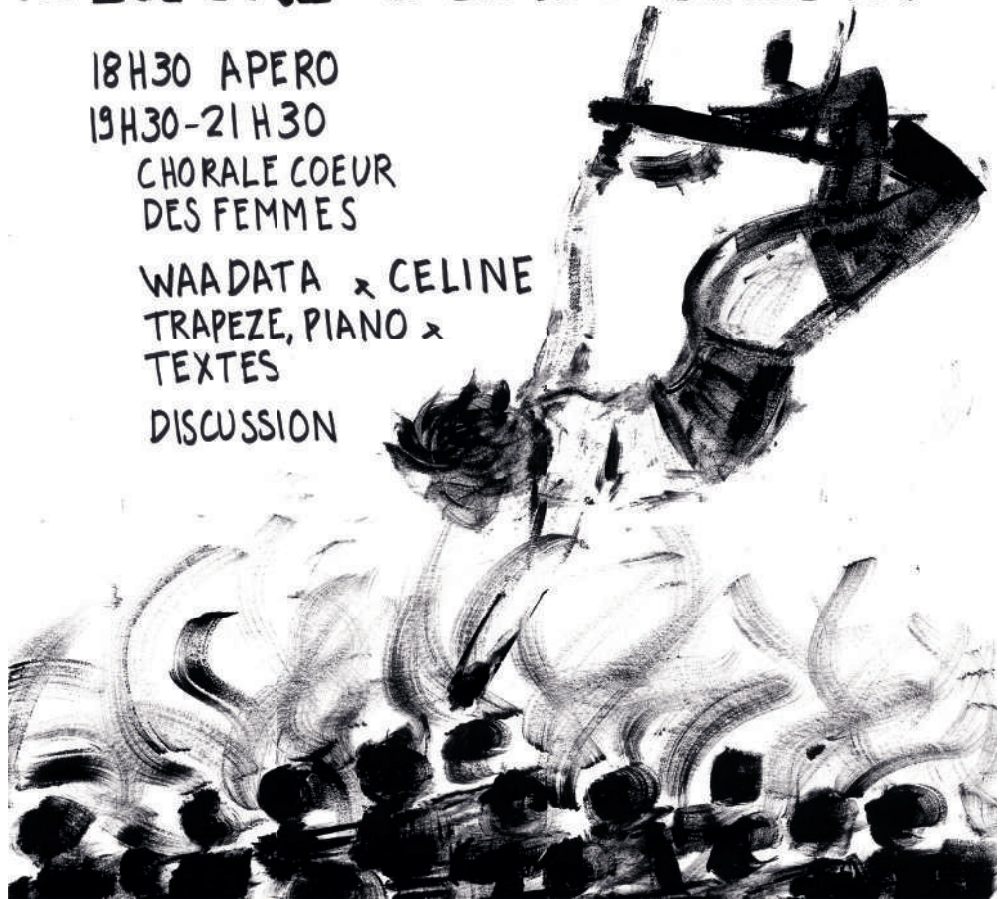 18H30 APERO
19H30-21H30
CHORALE COEUR
DES FEMMES
WAADATA & CELINE
TRAPEZE, PIANO &
TEXTES
DISCUSSION